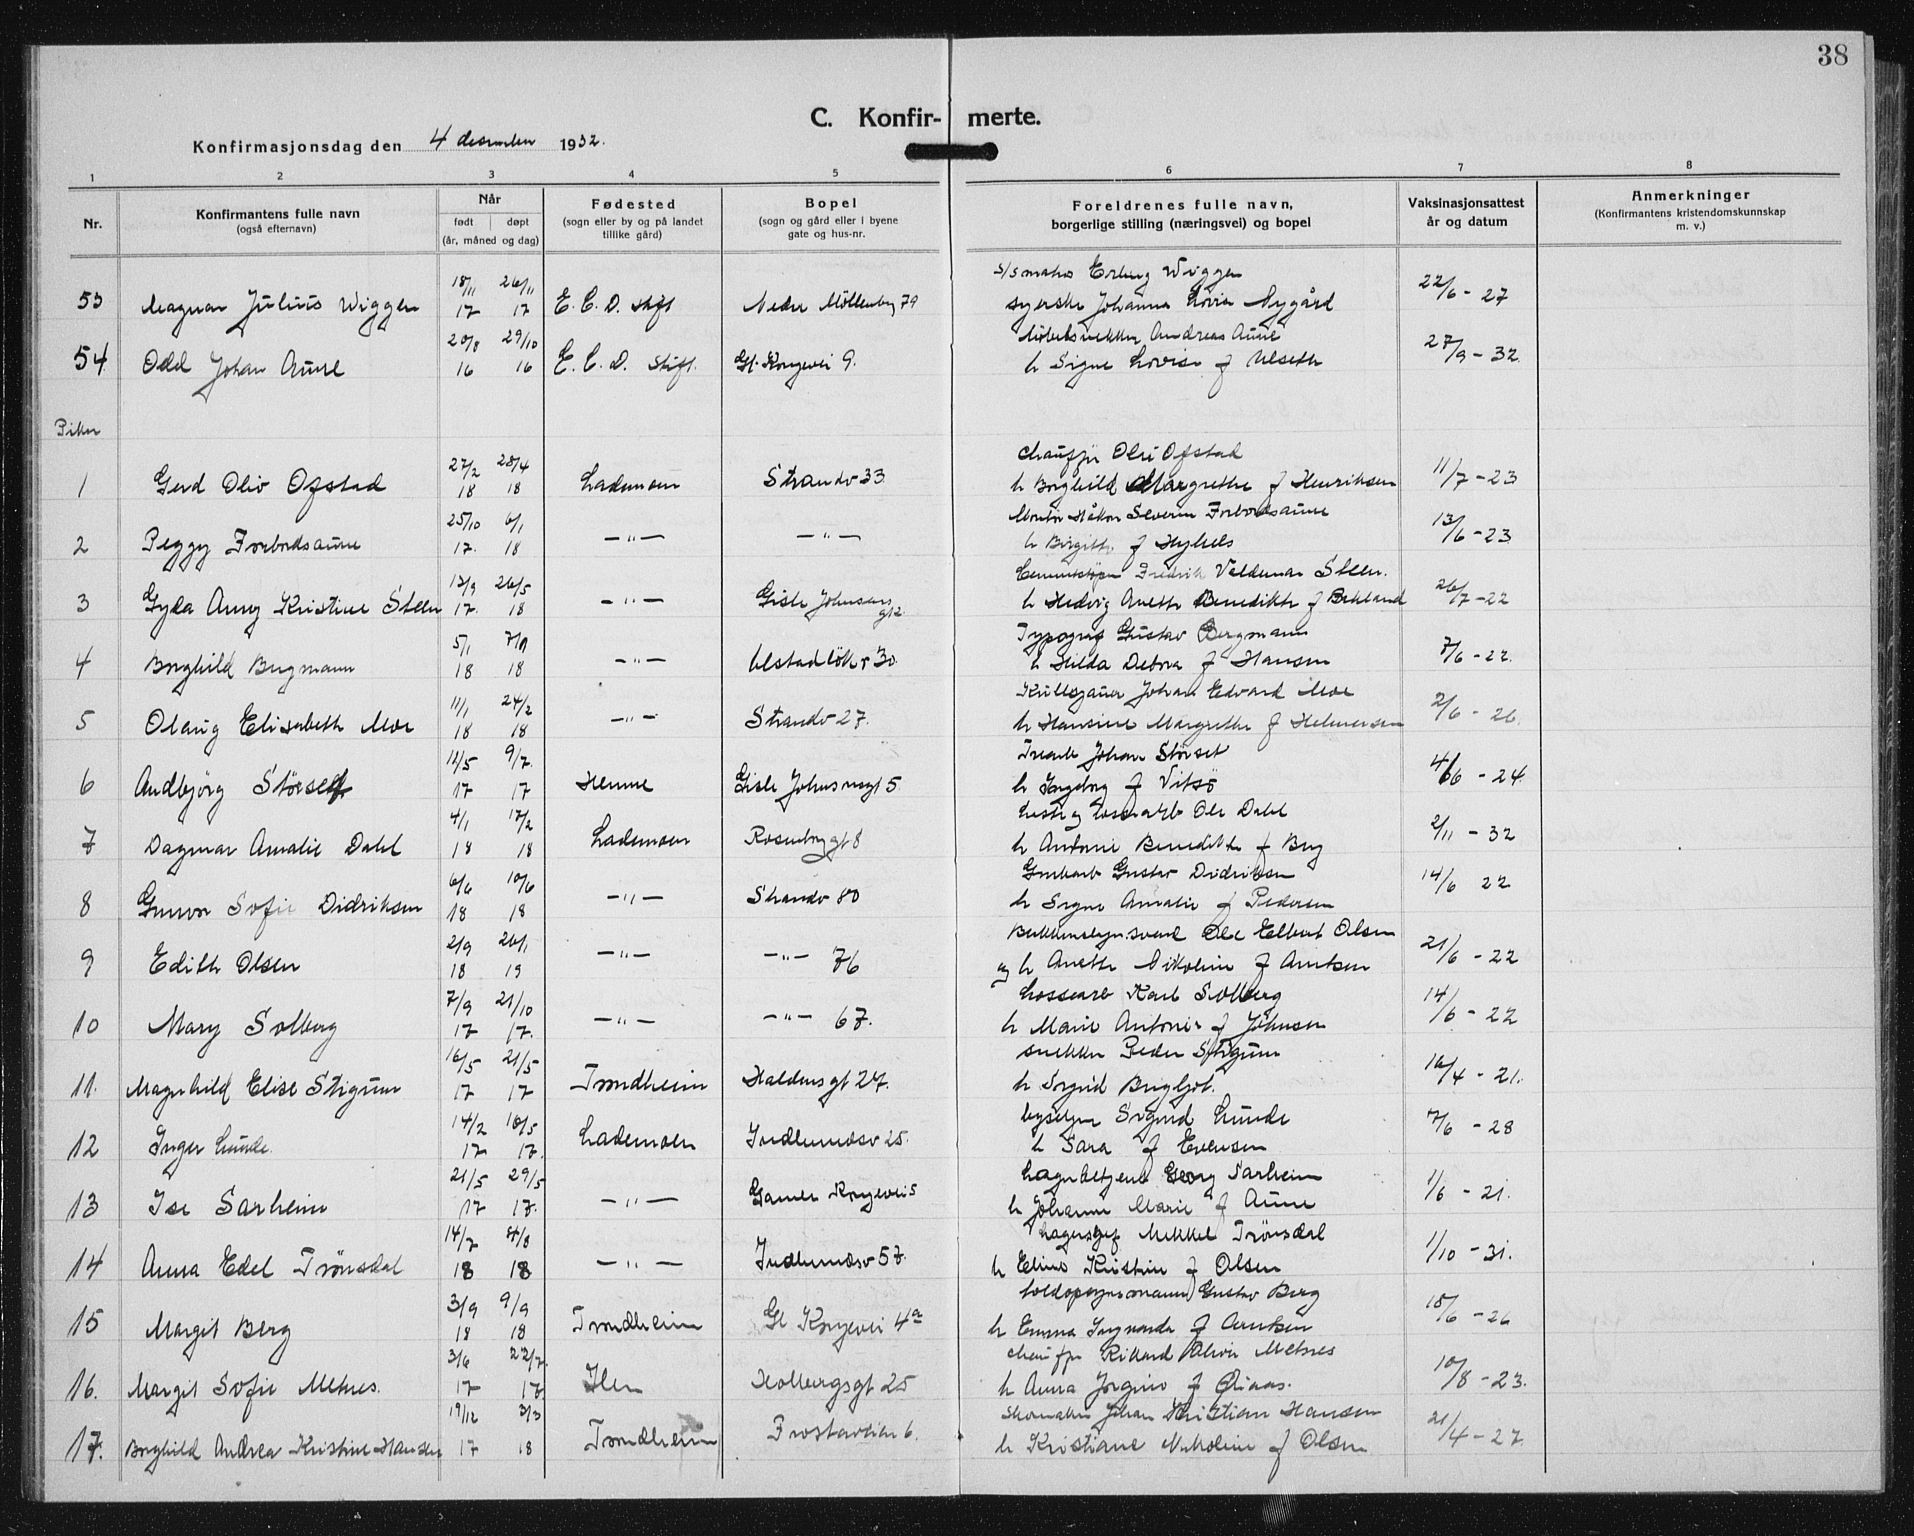 38
C. Konfir- merte.
Konfirmasjonsdag den 4 desember 1932.
1 2 3 4 5 6 7 8
Nr.
Konfirmantens fulle navn
(også efternavn)
Når
født døpt
(år, måned og dag)
Fødested
(sogn eller by og på landet
tillike gård)
Bopel
(sogn og gård eller i byene
gate og hus-nr.
Foreldrenes fulle navn,
borgerlige stilling (næringsvei) og bopel
Vaksinasjonsattest
år og datum
Anmerkninger
(Konfirmantens kristendomskunnskap
m. v.)
18/11 26/11 Erling Wiggen
53 Magnar Julius Wiggen 17 17 E. C. D. stift Nedre Möllenberg 79 syerske Johanna Lovise Nygård 22/6 - 27
20/8 29/10 Andreas Aune
54 Odd Johan Aune 16 16 E. C. D. Stift. Gl. Kongevei 9. h Signe Lovise f Ulseth 27/9 - 32
Piker
27/2 28/4 chauffør Ole Ofstad
1 Gerd Oliv Ofstad 18 18 Lademoen Strandv 33 h Borghild Margrethe f Henriksen 11/7 - 23
25/10 6/1 Montør Håkon Severin Forbordsaune
2 Peggy Forbordsaune 17. 18 -"- -"- h Birgitte f Hyhels 13/6 - 23
13/9 26/5 Fredrik Valdemar Steen.
3 Gyda Anny Kristine Steen 17. 18 -"- Gisle Johnsens gt 2 h Hedvig Anette Benedikte f Bekland 26/7 - 22
5/1 7/9 Typograf Gustav Bergmann
4 Borghild Bergmann 18 18 -"- Ulstadløkv 30 h Hilda Debora f Hansen 7/6 - 22.
11/1 24/2 Kullkjører Johan Edvard Moe
5 Olaug Elisabeth Moe 18 18 -"- Strandv 27. h Hansine Margrethe f Helmersen 2/6 - 26.
11/5 9/7. Johan Störset
6 Audbjörg Störset 17 17 Hemne Gisle Johnsensgt 5 h Ingeborg f Vitsö 4/6 - 24
4/1 17/2 Laste og lossearb Ole Dahl
7 Dagmar Amalie Dahl 18 18 Lademoen Rosenborggt 8 h Antonie Benedikte f Berg 2/11 - 32
6/6 10/6 Grubearb Gustav Didriksen
8 Gunvor Sofie Didriksen 18 18 -"- Strandv 80 h Signe Amalie f Pedersen 14/6 22
2/9 26/1 Ole Elbert Olsen
9 Edith Olsen 18 19 -"- -"- 76 og h Anette Nikoline f Arntsen 21/6 - 22
7/9 21/10 Lossearb Karl Solberg
10 Mary Solberg 17 17. -"- -"- 67. h Marie Antonie f Johnsen 14/6 - 22
16/5 21/5 snekker Peder Stigum
11. Magnhild Elise Stigum 17 17 Trondheim Haldensgt 27. h Sigrid Bergljot. 16/4 - 21.
14/2 10/5 Sigurd Lunde
12 Inger Lunde. 17 17. Lademoen Indherredsv 25. h Sara f Evensen 7/6 - 28
21/5 29/5 Lagerbetjent Georg Sarheim
13 Ise Sarheim 17 17. -"- Gamle Kongevei 5 h Johanne Marie f Aune 1/6 - 21.
14/7 4/8 Lagersjef Mikkel Trönsdal
14 Anna Edel Trönsdal 18 18 -"- Indherredsv 57. h Eline Kristine f Olsen 1/10 - 31.
3/9 9/9 Gustav Berg
15 Margit Berg 18 18 Trondheim Gl Kongevei 4a h Emma Ingvarda f Arntsen 15/6 - 26
3/6 22/7. chauffør Rikard Metnes
16. Margit Sofie Metnes. 17 17 Ilen Holbergsgt 25 h Anna Jørgine f Oiaas. 10/8 - 23.
19/12 3/3 Skomaker Johan Kristian Hansen
17. Borghild Andrea Kristine Hansen 17 18 Trondheim Frostaveien 6. h Kristiane Nikoline f Olsen 21/4 - 27